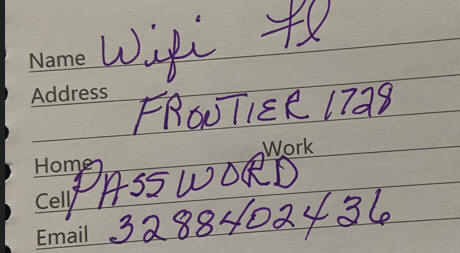 Name Wifi Fl
Address
FRONTIER 1728
Home Work
Cell PASSWORD
Email 3288402436